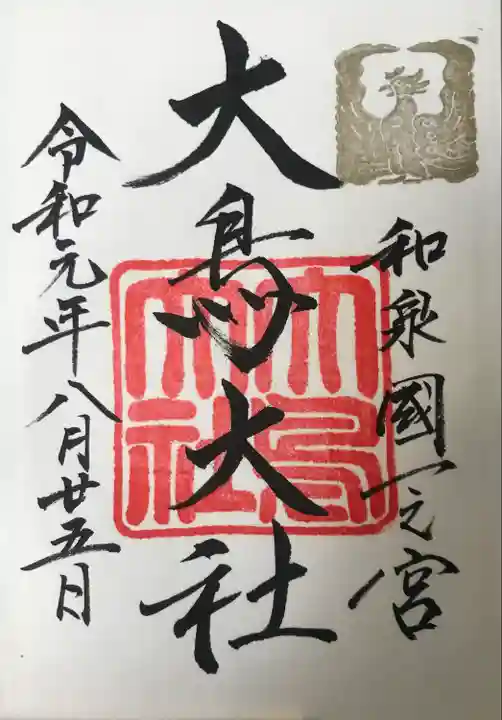 和泉國一之宮
大鳥大社
令和元年八月廿五日
大鳥大社